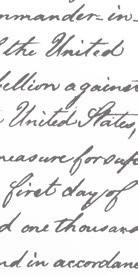 mmander-in-
f the United
bellion against
e United States,
measure for supp
first day of
d one thousand
nd in accordanc